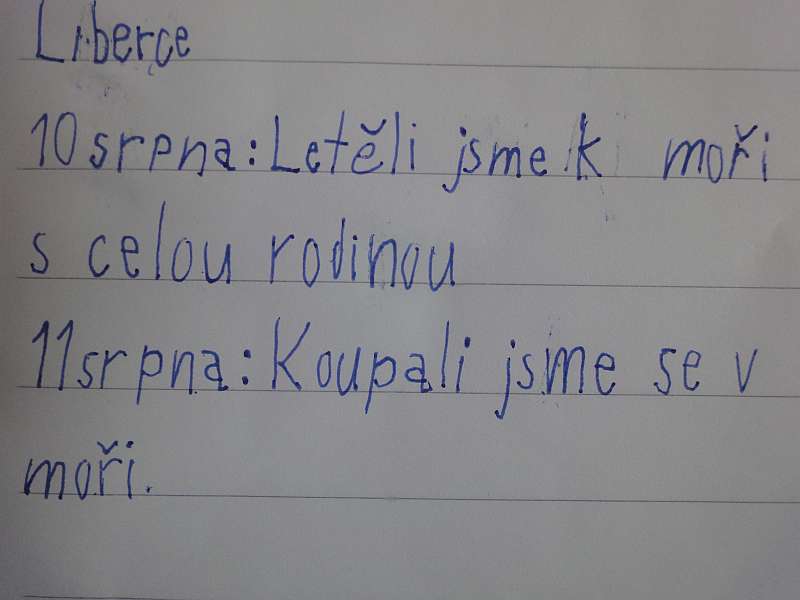 Liberce
10 srpna: Letěli jsme k moři
s celou rodinou
11 srpna: Koupali jsme se v
moři.